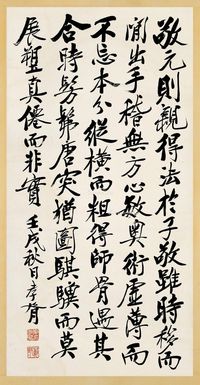 敬元則親得法於子敬雖時移而
閒出手稽無方心敏奧術虛薄而
不忘本分縱橫而粗得師骨遇其
合時髣髴唐突猶圖騏驥而莫
展塑真僊而非實 壬戌秋日孝胥